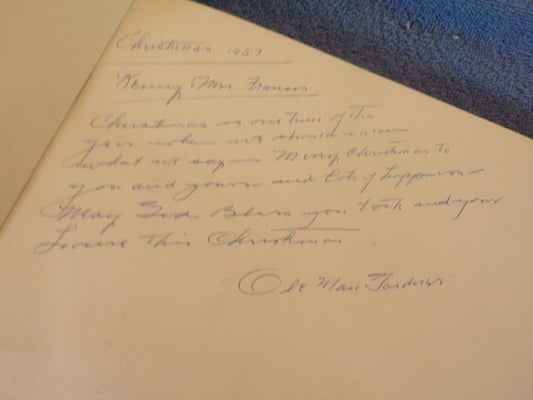 Christmas 1957
Kenny & Mrs. Francis.
Christmas is one time of the
year when we should mean
what we say — Merry Christmas to
you and yours — and lots of happiness —
May God Bless you both and your
Loved this Christmas.
Ole Man